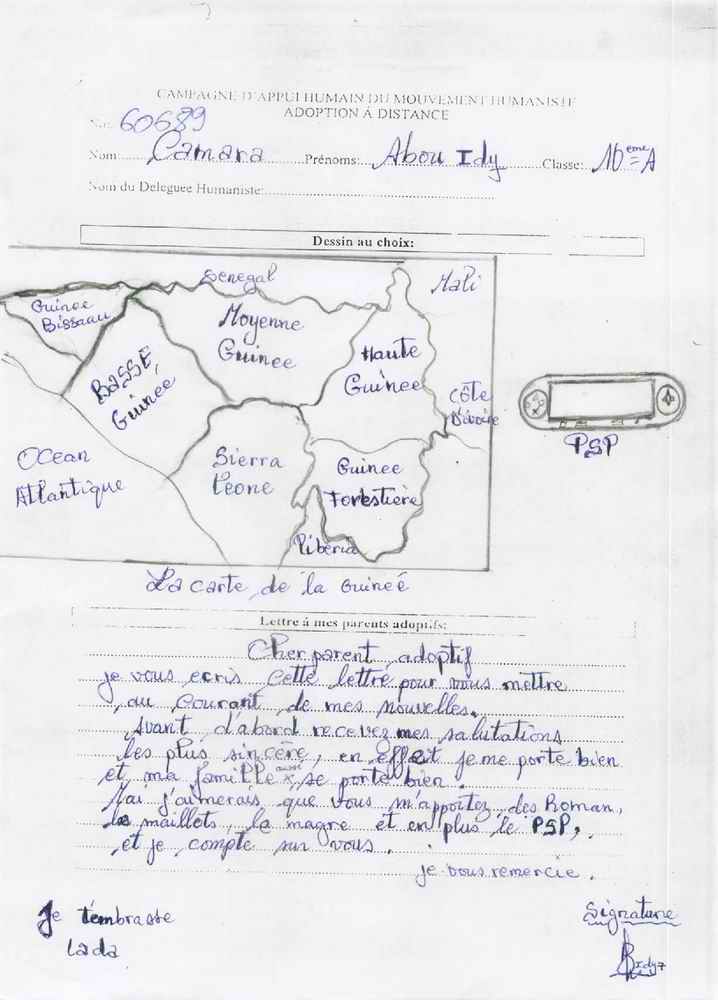 CAMPAGNE D'APPUI HUMAIN DU MOUVEMENT HUMANISTE
ADOPTION À DISTANCE
No: 60689
Nom: Camara Prénoms: Abou Idy Classe: 10ème A
Nom du Deleguee Humaniste:
Dessin au choix:
Senegal
Mali
Guinee
Bissau
Moyenne
Guinee
BASSE
Guinee
Haute
Guinee
Côte
D'ivoire
PSP
Ocean
Atlantique
Sierra
Leone
Guinee
Forestière
Liberia
La carte de la Guineé
Lettre à mes parents adoptifs:
Cher parent adoptif
je vous ecris cette lettre pour vous mettre
au courant de mes nouvelles.
Avant d'abord recevez mes salutations
les plus sincère, en effet je me porte bien
et ma famille aussi se porte bien.
Mai j'aimerais que vous m'apportez des Roman,
le maillots, la magre et en plus le PSP,
et je compte sur vous.
je vous remercie.
Je t'embrasse
lada
Signature
Idy7